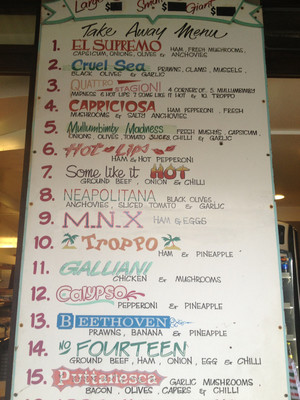 Large Small Giant
$ $ $
Take Away Menu
1. EL SUPREMO HAM, FRESH MUSHROOMS,
CAPSICUM, ONIONS, OLIVES & ANCHOVIES
2. Cruel Sea PRAWNS, CLAMS, MUSSELS,
BLACK OLIVES & GARLIC
3. QUATTRO STAGIONI 4 CORNERS OF, 5 MULLUMBIMBY
MADNESS, 6 HOT LIPS 7 SOME LIKE IT HOT & 10 TROPPO
4. CAPRICIOSA HAM PEPPERONI, FRESH
MUSHROOMS & SALTY ANCHOVIES
5. Mullumbimby Madness FRESH MUSH'S, CAPSICUM,
ONIONS, OLIVES, TOMATO SUGAR, CHILLI & GARLIC
6. HOT LIPS
HAM & HOT PEPPERONI
7. Some like it HOT
GROUND BEEF, ONION & CHILLI
8. NEAPOLITANA BLACK OLIVES,
ANCHOVIES, SLICED TOMATO & GARLIC
9. M.N.X HAM & EGGS
10. TROPPO
HAM & PINEAPPLE
11. GALLIANI
CHICKEN & MUSHROOMS
12. Calypso
PEPPERONI & PINEAPPLE
13. BEETHOVEN
PRAWNS, BANANA & PINEAPPLE
14. NO FOURTEEN
GROUND BEEF, HAM, ONION, EGG & CHILLI
15. Puttanesca GARLIC MUSHROOMS,
BACON, OLIVES, CAPERS & CHILLI